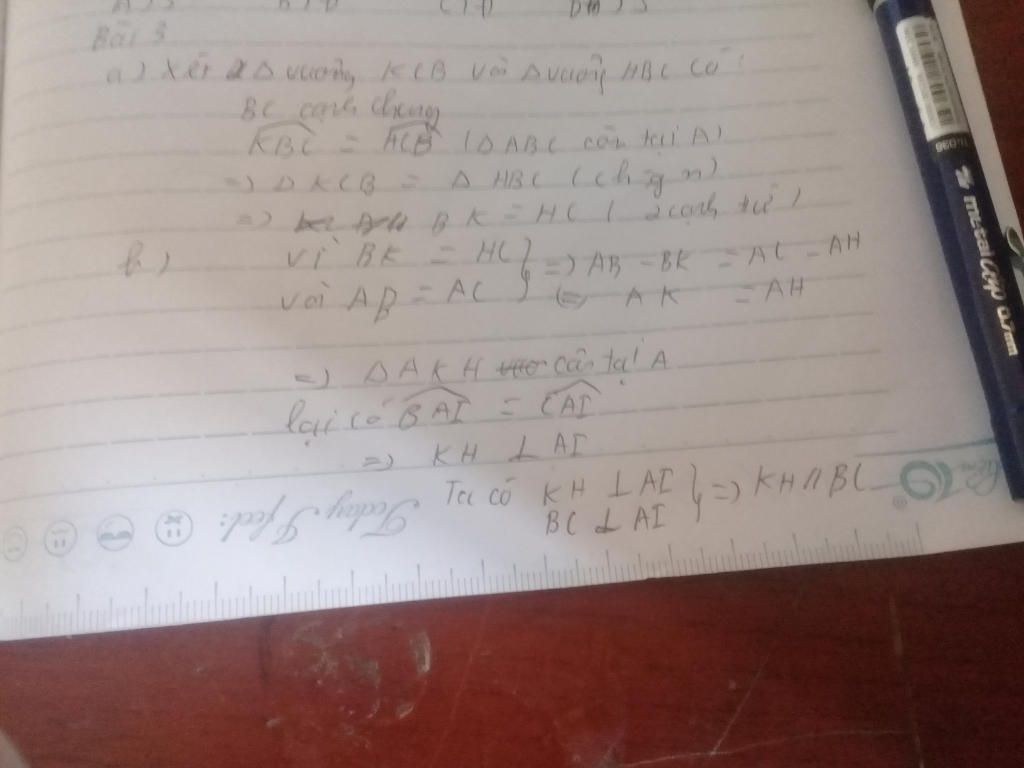 Bài 3
a) Xét 2 Δ vuông KCB với Δ vuông HBC có :
BC cạnh chung
KBC = HCB (Δ ABC cân tại A)
=) Δ KCB = Δ HBC (ch - gn)
=) BK = HC ( 2 cạnh tứ )
b) Vì BK = HC } =) AB - BK = AC - AH
với AB = AC } (=) AK = AH
=) Δ AKH cân tại A
lại có BAI = CAI
=) KH ⊥ AI
Ta có KH ⊥ AI } =) KH // BC
BC ⊥ AI
Today I feel:
metal clip 0.7mm